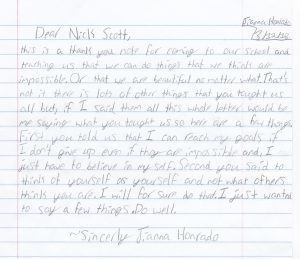 Jianna Honrado
Dear Nick Scott,
this is a thank you note for coming to our school and
teaching us that we can do things that we think are
impossible. Or that we are beautiful no matter what. That's
not it there is lots of other things that you taught us
all but, if I said them all this whole letter would be
me saying what you taught us so here are a few things.
First you told us that I can reach my goals if
I don't give up even if they are impossible and, I
just have to believe in my self. Second you said to
think of yourself as yourself and not what others
think you are. I will for sure do that. I just wanted
to say a few things. Do well.
~Sincerly Jianna Honrado